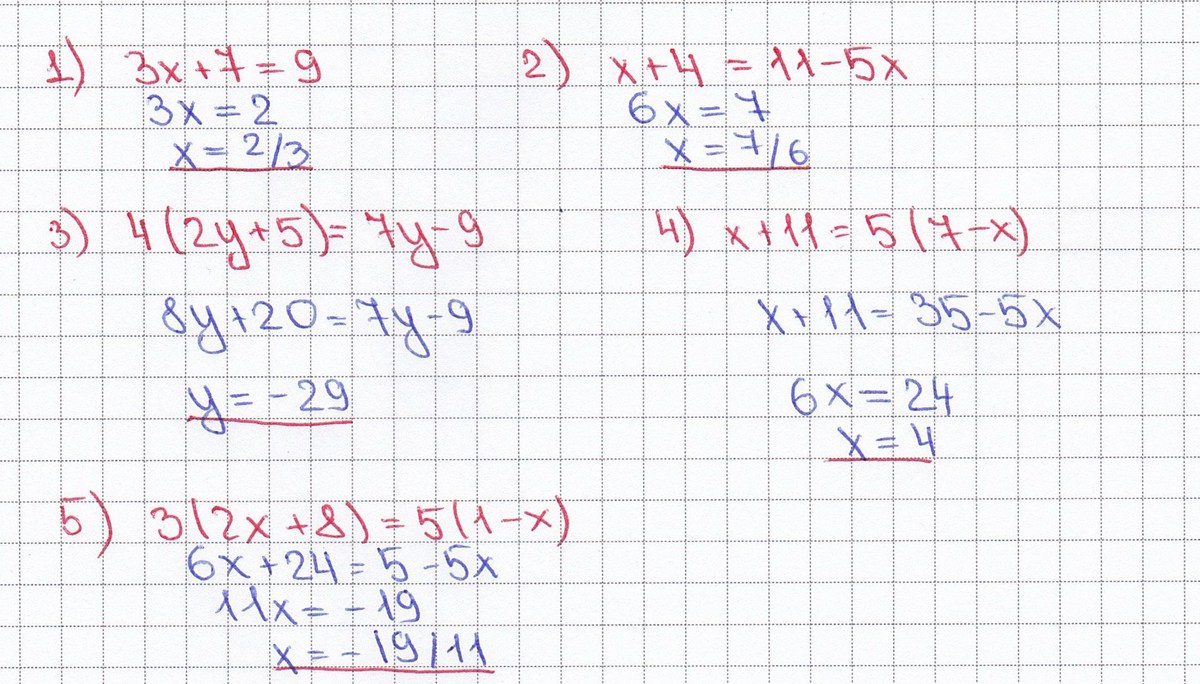 1) 3x+7=9
3x=2
x=2/3
2) x+4=11-5x
6x=7
x=7/6
3) 4(2y+5)=7y-9
8y+20=7y-9
y=-29
4) x+11=5(7-x)
x+11=35-5x
6x=24
x=4
5) 3(2x+8)=5(1-x)
6x+24=5-5x
11x=-19
x=-19/11